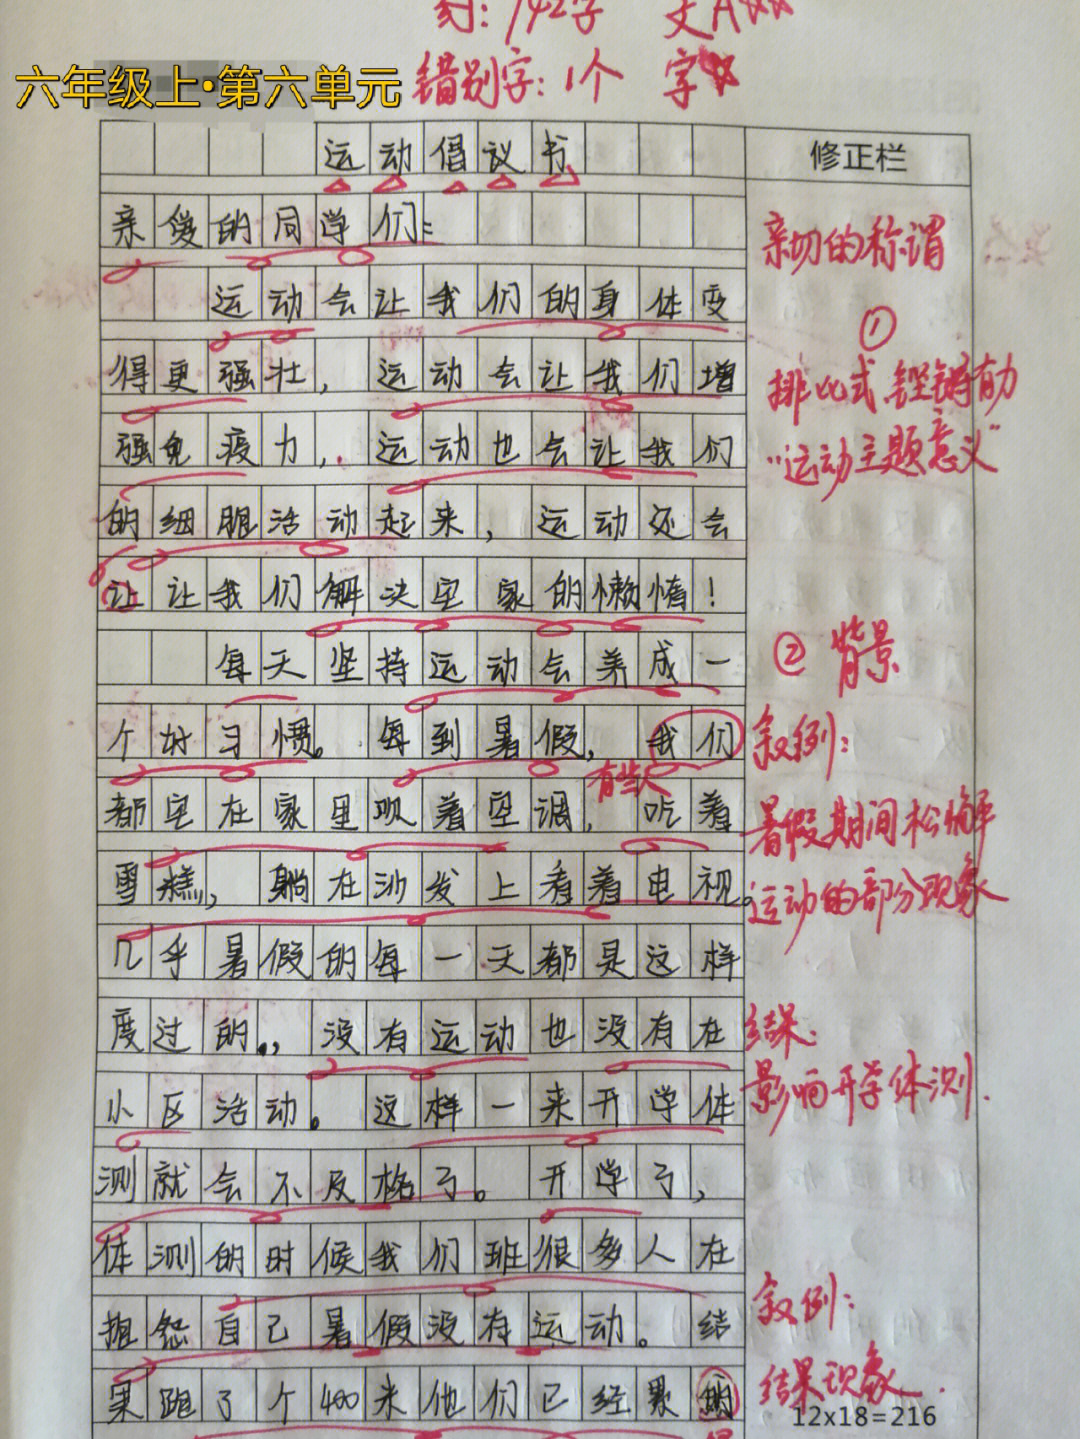 142字 文A
六年级上·第六单元
错别字:1个 字
运动倡议书
修正栏
亲爱的同学们:
亲切的称谓
运动会让我们的身体变
①
得更强壮,运动会让我们增
排比式,铿锵有力
强免疫力,运动也会让我们
"运动主题意义"
的细胞活动起来,运动还会
让让我们解决宅家的懒惰!
每天坚持运动会养成一
② 背景
个好习惯。每到暑假,我们
叙例:
有些人
都宅在家里吹着空调,吃着
暑假期间松懈
雪糕,躺在沙发上看着电视。
运动的部分现象
几乎暑假的每一天都是这样
度过的,没有运动也没有在
结果:
小区活动。这样一来开学体
影响开学体测.
测就会不及格了。开学了,
体测的时候我们班很多人在
叙例:
抱怨自己暑假没有运动。结
结果现象.
果跑了个400米他们已经累
12x18=216